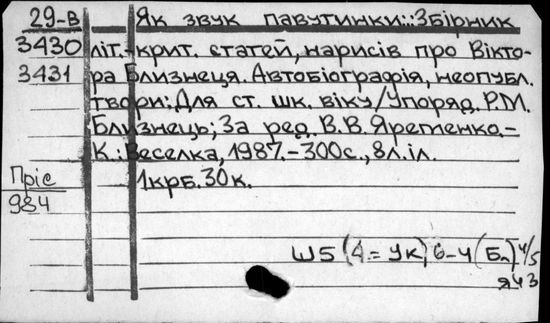 29-В Як звук павутинки: Збірник
3430 літ.-крит. статей, нарисів про Вікто-
3431 ра Близнеця. Автобіографія, неопубл.
твори: Для ст. шк. віку/Упоряд. Р.М.
Близнець; За ред. В.В.Яременко.-
К.: Веселка, 1987.-300с., 8л.іл.
Пріс 1крб. 30к.
984
Ш5(4=Ук)6-4(Бл) 4/5
Я43